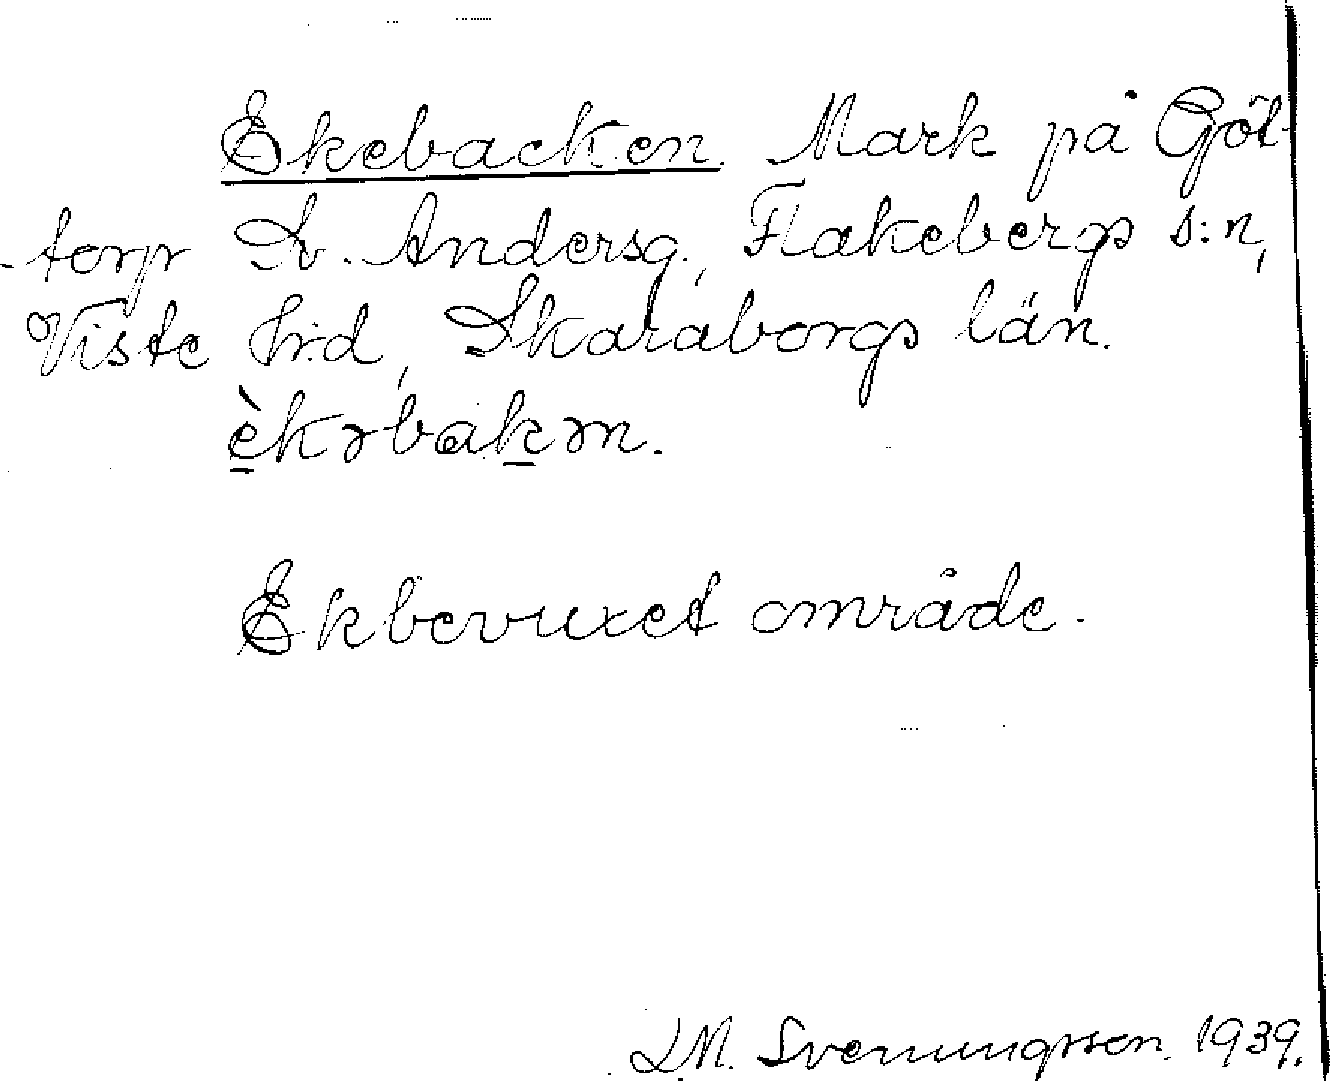 Ekebacken. Mark på Göl-
-torp L. Andersg., Flakebergs s:n,
Viste h:d, Skaraborgs län.
èkəbakən.
Ekbevuxet område.
L.M. Svenungsson. 1939.